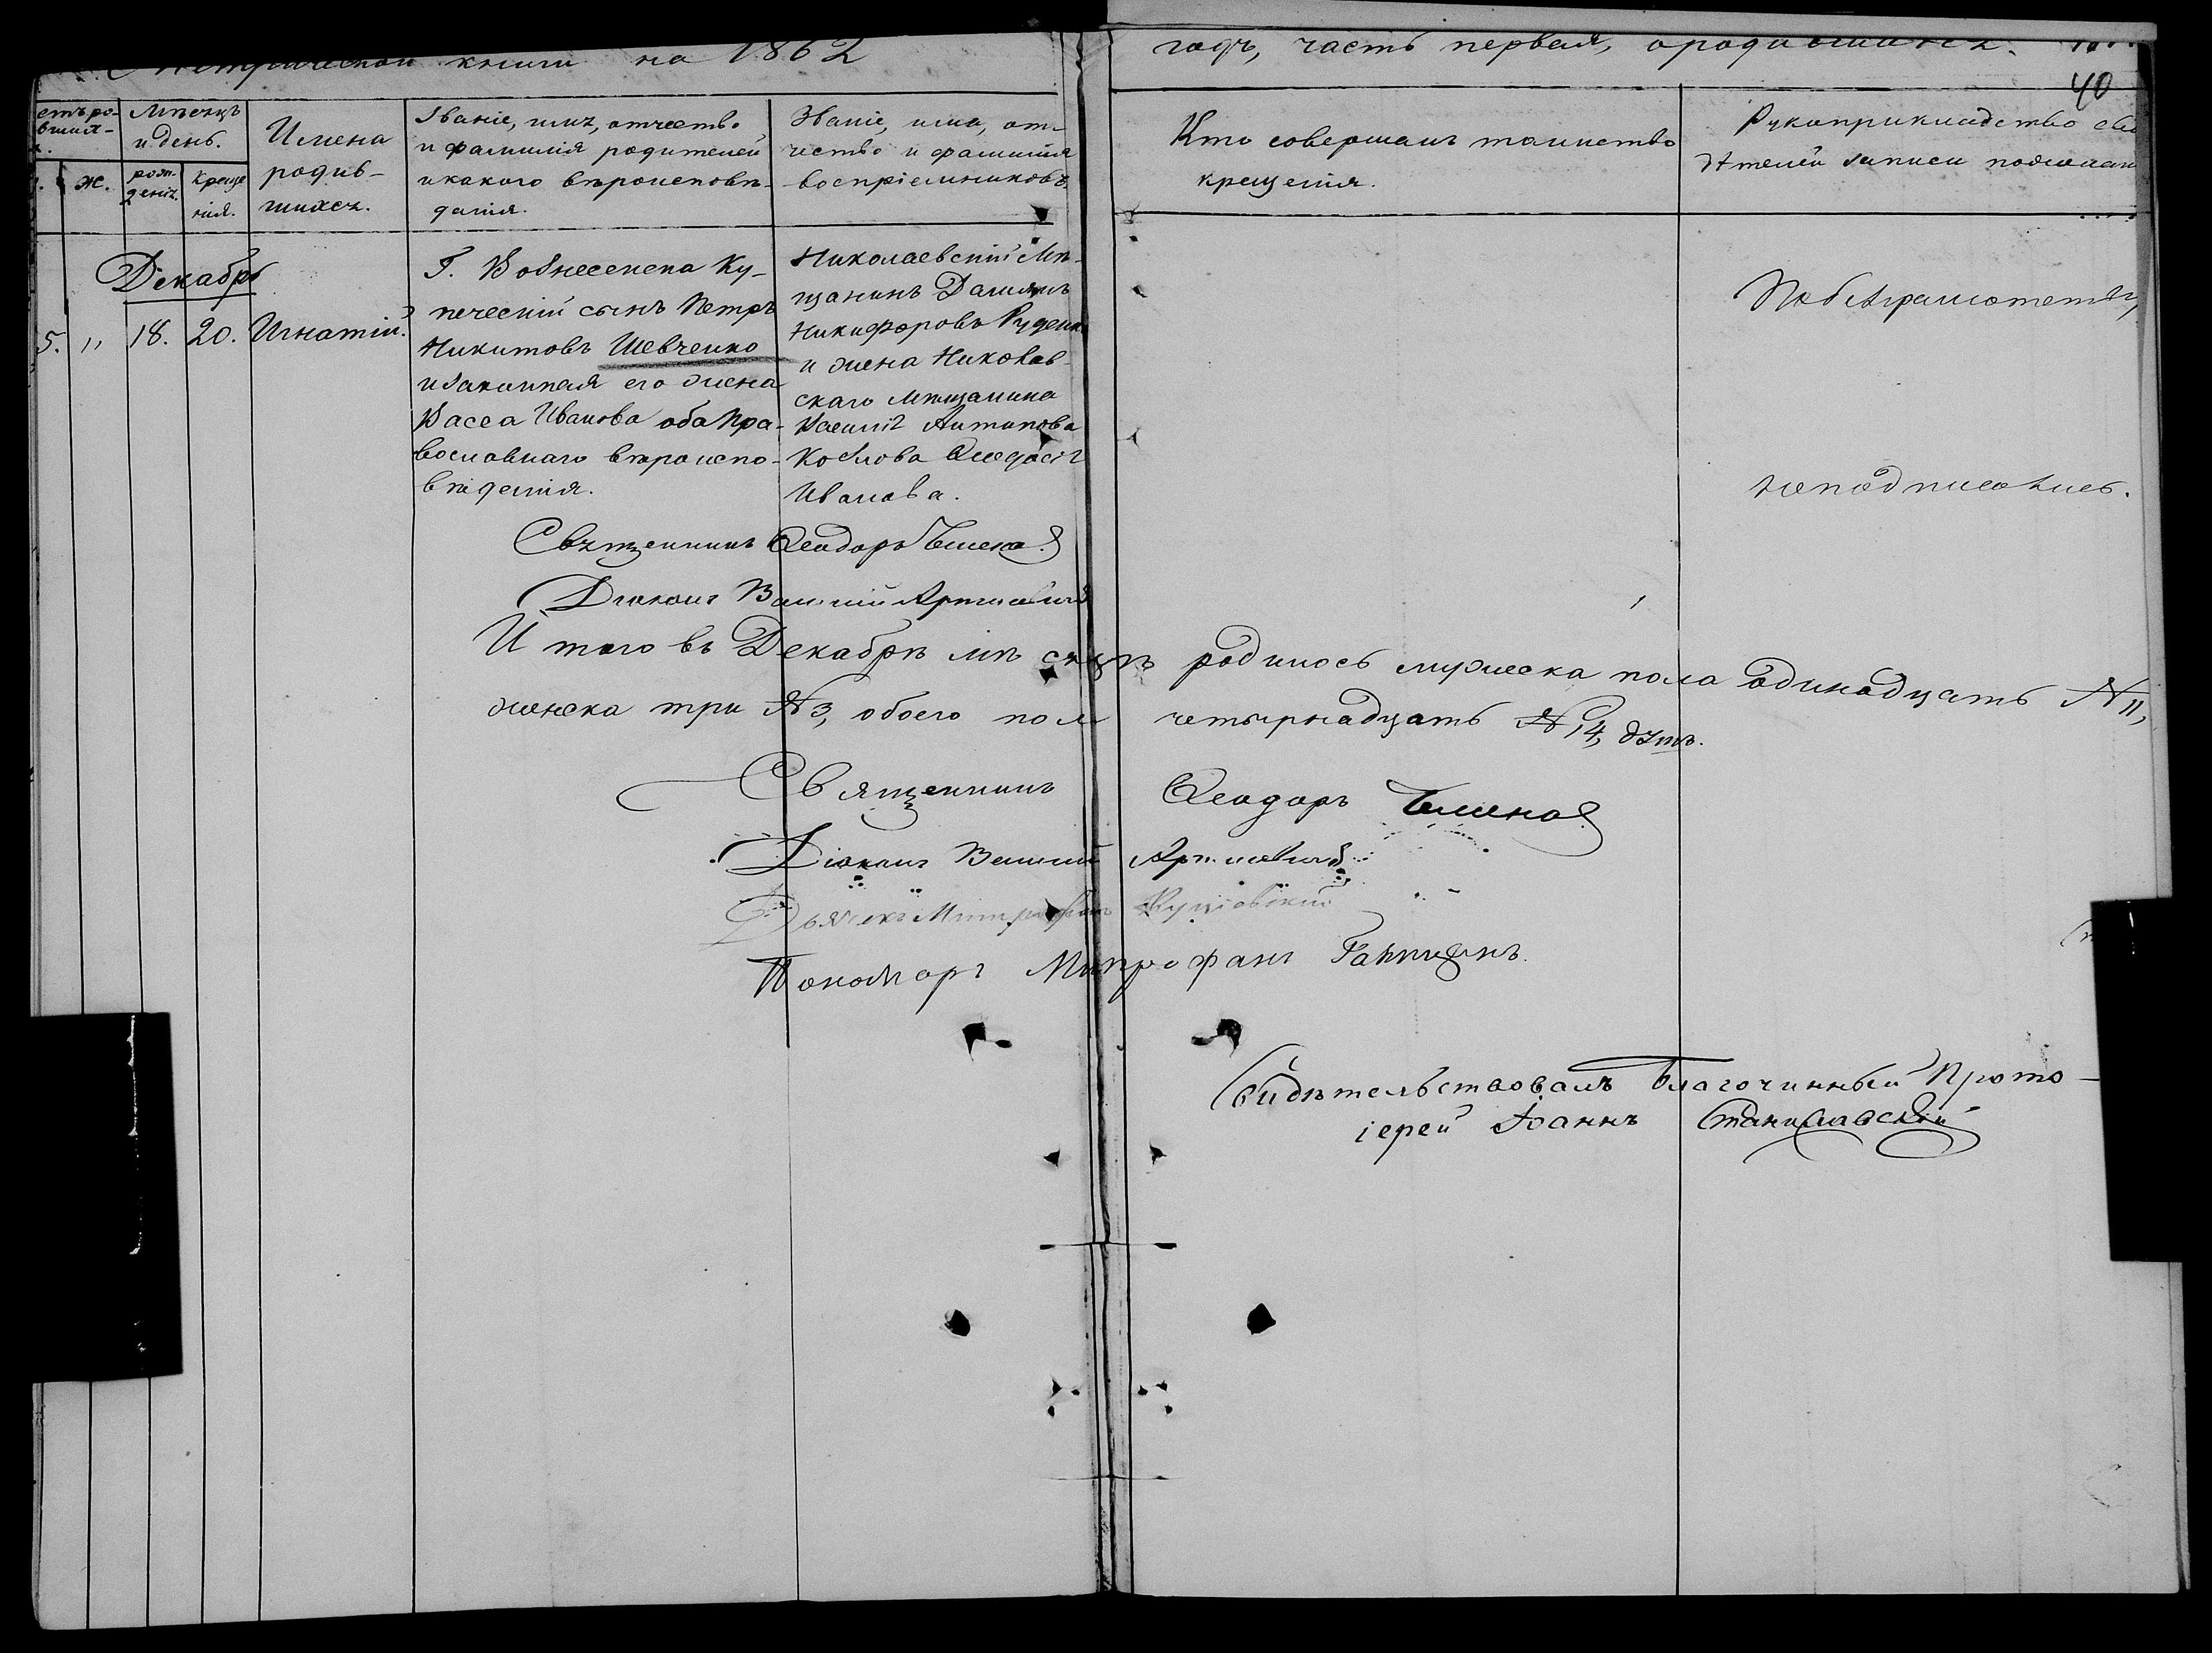 Метрической книги на 1862 годъ, часть первая, о родившихся.
40
Мѣсяцъ
и день.
ж.
рож-
денія.
креще
нія.
Имена
родив-
шихся.
Званіе, имя, отчество,
и фамилія родителей
и какого вѣроисповѣ-
данія.
Званіе, имя, от-
чество и фамилія
воспріемниковъ.
Кто совершалъ таинство
крещенія.
Рукоприкладство сви
дѣтелей записи по желан
Декабрь
5. " 18. 20. Игнатій.
Г. Вознесенска Ку-
печескій сынъ Петръ
Никитовъ Шевченко
и законная его жена
Васса Иванова оба Пра-
вославнаго вѣроиспо-
вѣденія.
Николаевскій Мѣ-
щанинъ Даміянъ
Никифоровъ Руденк
и жена Николаев-
скаго мѣщанина
Василія Антипова
Козлова Ѳеодосія
Иванова.
По безграмотству,
неподписались.
Священникъ Ѳеодоръ
Діаконъ Василій
И того въ Декабрѣ мѣсяцѣ родилось мужеска пола одинадцать № 11,
женска три № 3, обоего пола четырнадцать № 14, душъ.
Священникъ Ѳеодоръ
Діаконъ Василій
Дьячекъ Митрофанъ
Пономарь Митрофанъ
Свидѣтельствовалъ Благочинный Прото-
іерей Іоаннъ Станиславскій